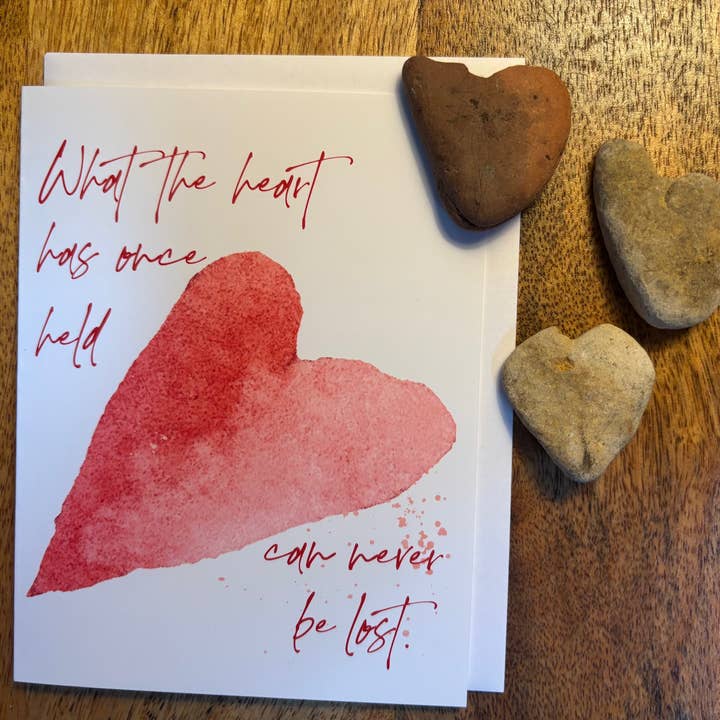 What the heart
has once
held
can never
be lost.